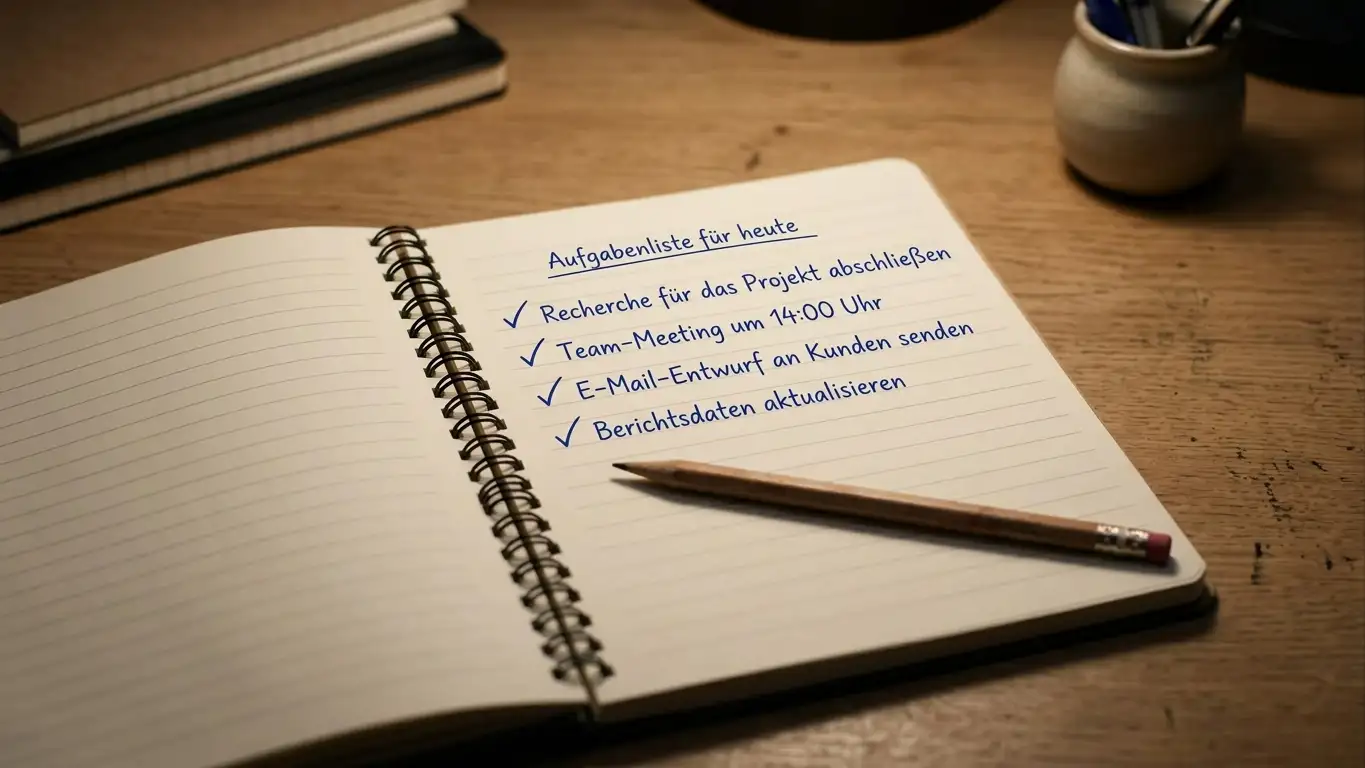 Aufgabenliste für heute
✓ Recherche für das Projekt abschließen
✓ Team-Meeting um 14:00 Uhr
✓ E-Mail-Entwurf an Kunden senden
✓ Berichtsdaten aktualisieren